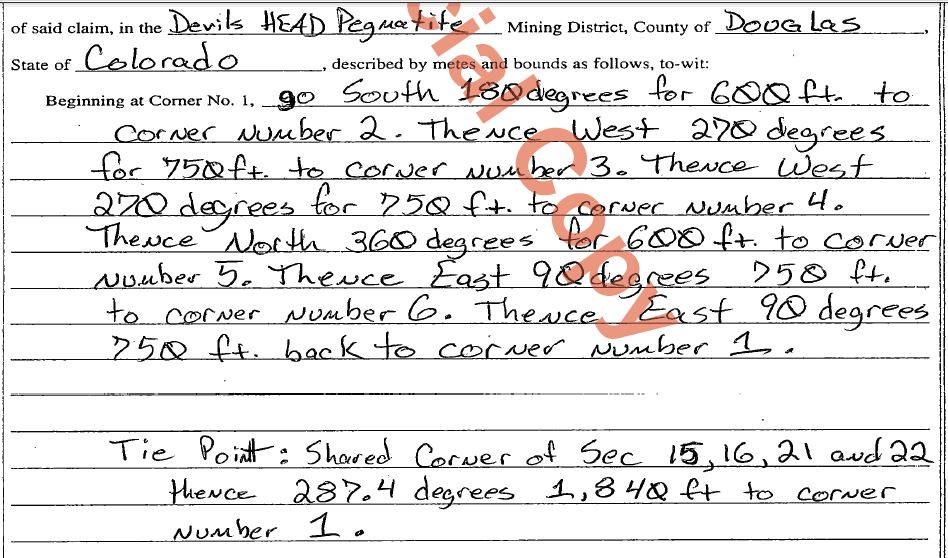 of said claim, in the Devils HEAD Pegmatite Mining District, County of Douglas,
State of Colorado, described by metes and bounds as follows, to-wit:
Beginning at Corner No. 1, go South 180 degrees for 600 ft. to
corner number 2. Thence West 270 degrees
for 750 ft. to corner number 3. Thence West
270 degrees for 750 ft. to corner number 4.
Thence North 360 degrees for 600 ft. to corner
number 5. Thence East 90 degrees 750 ft.
to corner number 6. Thence East 90 degrees
750 ft. back to corner number 1.
Tie Point: Shared Corner of Sec 15, 16, 21 and 22
thence 287.4 degrees 1,840 ft to corner
number 1.
cial Copy